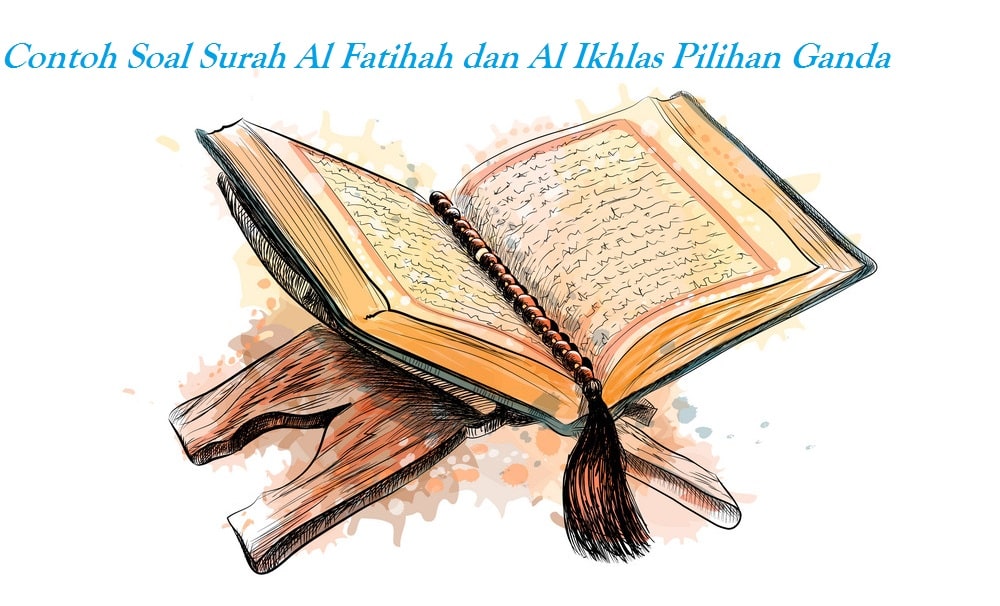 Contoh Soal Surah Al Fatihah dan Al Ikhlas Pilihan Ganda